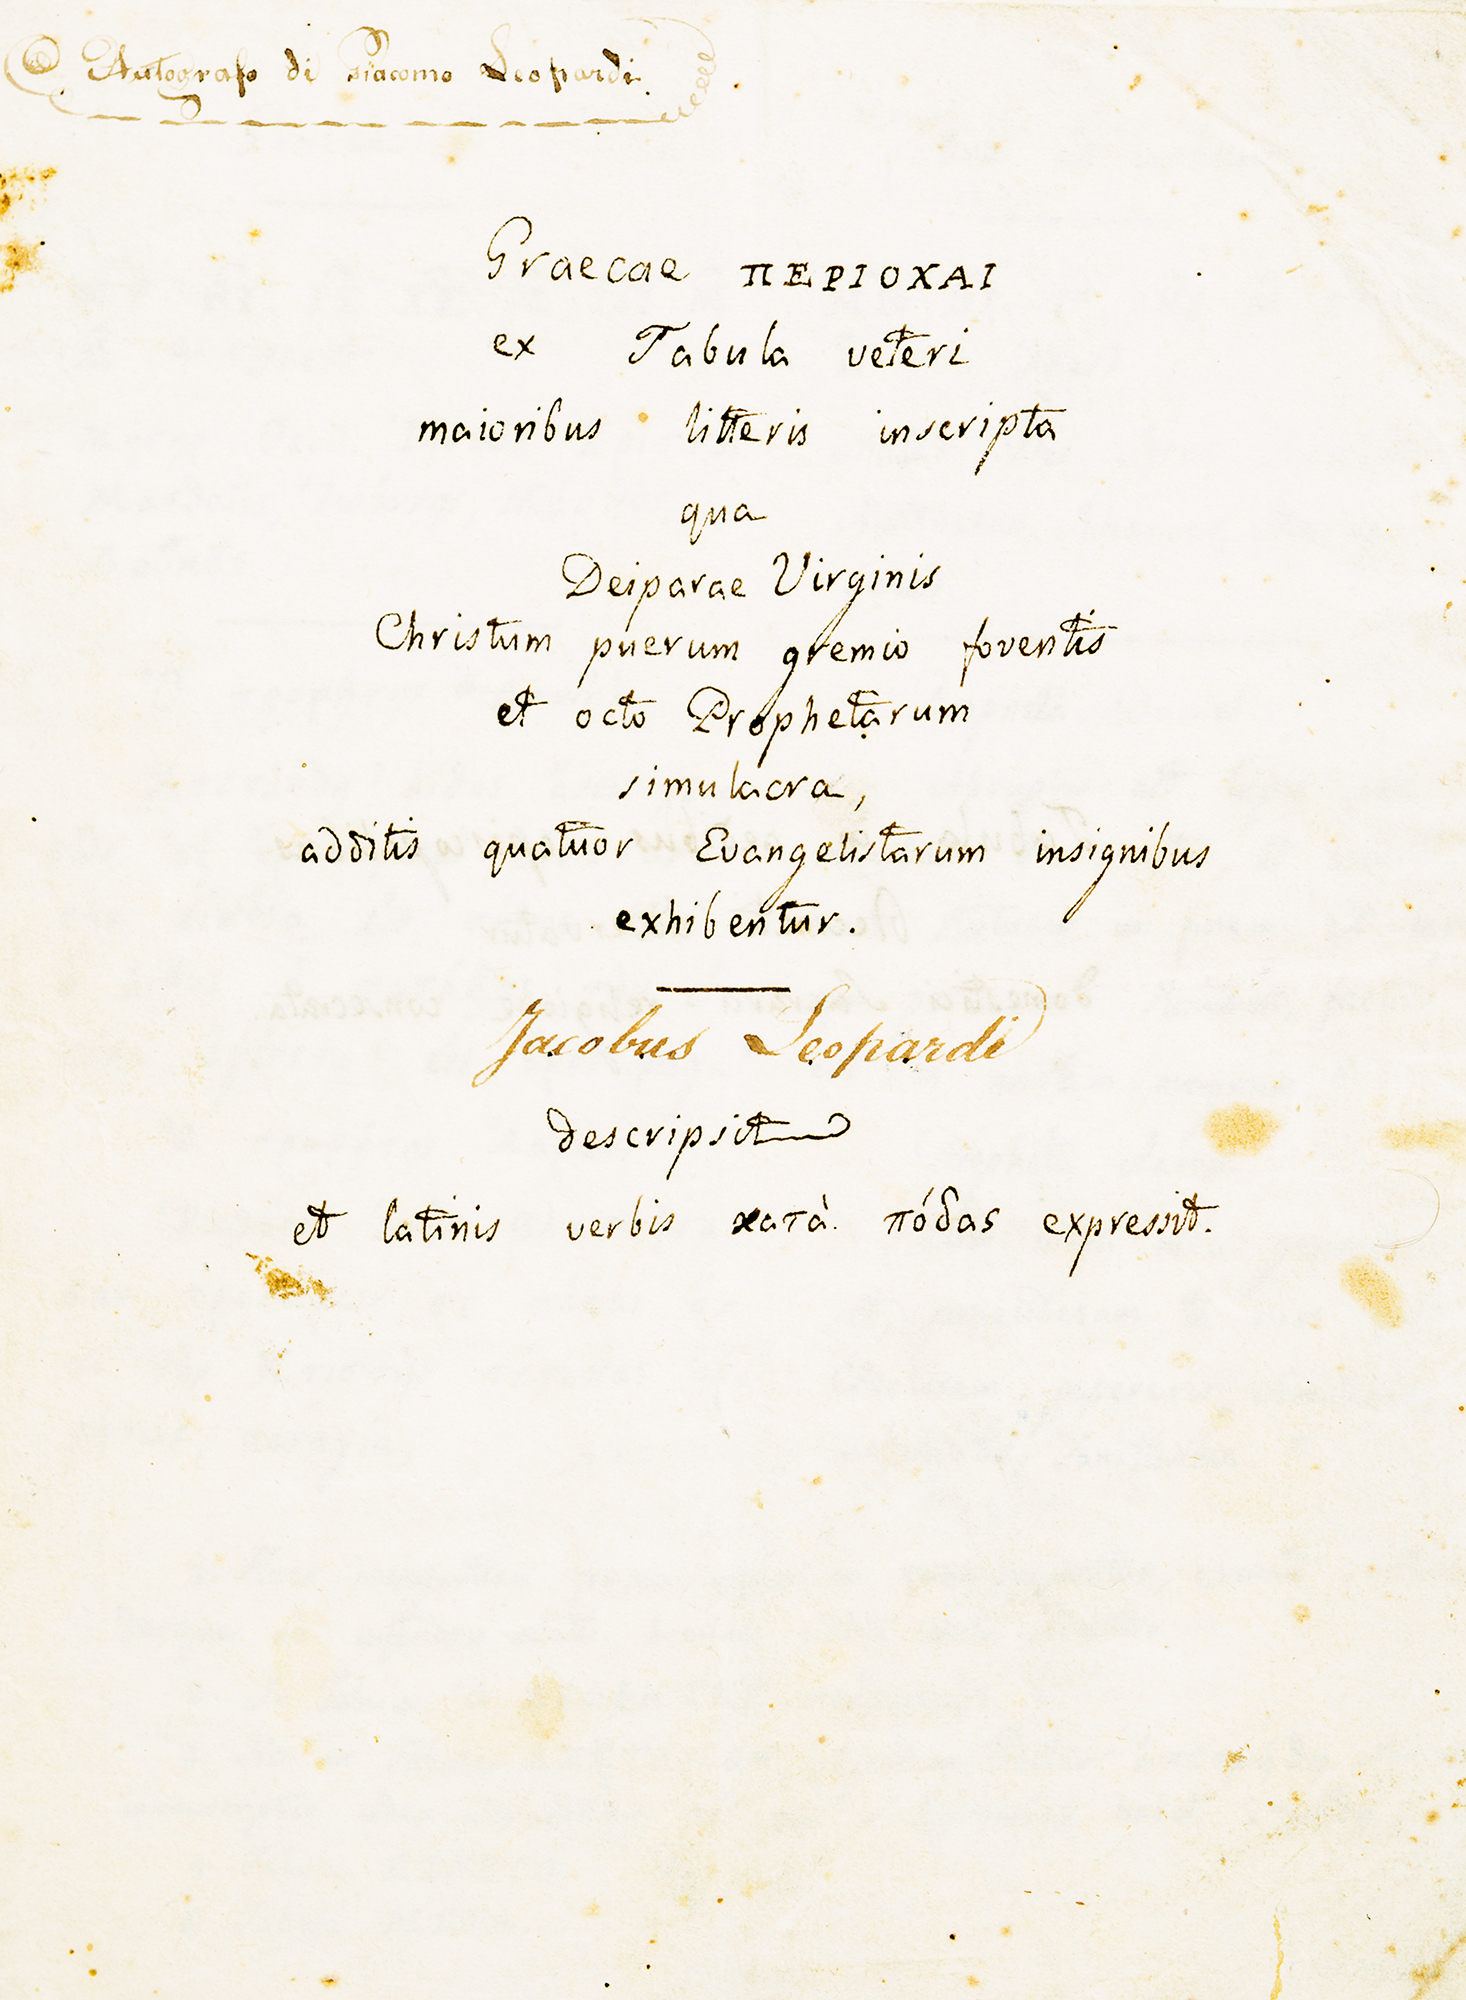 Autografo di Giacomo Leopardi.
Graecae ΠΕΡΙΟΧΑΙ
ex Tabula veteri
maioribus litteris inscripta
qua
Deiparae Virginis
Christum puerum gremio foventis
et octo Prophetarum
simulacra,
additis quatuor Evangelistarum insignibus
exhibentur.
Jacobus Leopardi
descripsit
et latinis verbis κατὰ πόδας expressit.